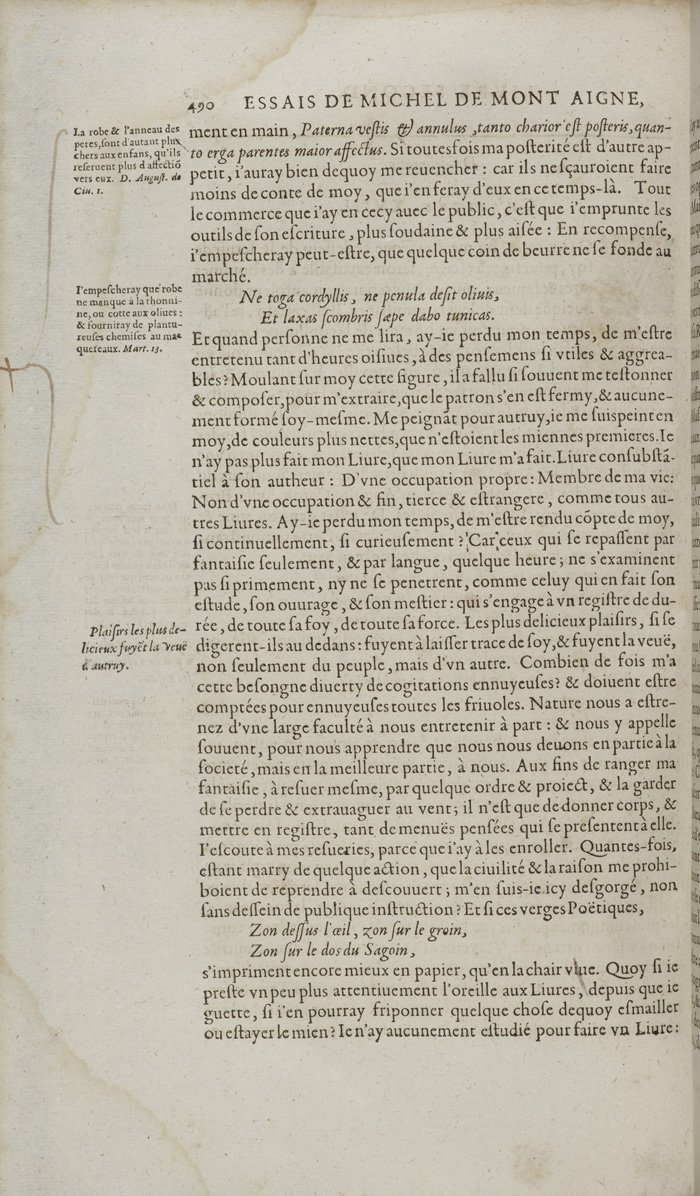 490 ESSAIS DE MICHEL DE MONTAIGNE,
La robe & l'anneau des
peres, sont d'autant plus
chers aux enfans, qu'ils
reseruent plus d'affectiō
vers eux. D. August. de
Ciu. 1.
ment en main, Paterna vestis & annulus, tanto charior est posteris, quan-
to erga parentes maior affectus. Si toutesfois ma posterité est d'autre ap-
petit, i'auray bien dequoy me reuencher: car ils ne sçauroient faire
moins de conte de moy, que i'en feray d'eux en ce temps-là. Tout
le commerce que i'ay en cecy auec le public, c'est que i'emprunte les
outils de son escriture, plus soudaine & plus aisée: En recompense,
i'empescheray peut-estre, que quelque coin de beurre ne se fonde au
marché.
I'empescheray que robe
ne manque à la thonni-
ne, ou cotte aux oliues:
& fourniray de plantu-
reuses chemises au ma-
quereaux. Mart. 13.
Ne toga cordyllis, ne penula desit oliuis,
Et laxas scombris sæpe dabo tunicas.
Et quand personne ne me lira, ay-ie perdu mon temps, de m'estre
entretenu tant d'heures oisiues, à des pensemens si vtiles & aggrea-
bles? Moulant sur moy cette figure, il a fallu si souuent me testonner
& composer, pour m'extraire, que le patron s'en est fermy, & aucune-
ment formé soy-mesme. Me peignāt pour autruy, ie me suis peint en
moy, de couleurs plus nettes, que n'estoient les miennes premieres. Ie
n'ay pas plus fait mon Liure, que mon Liure m'a fait. Liure consubstā-
tiel à son autheur: D'vne occupation propre: Membre de ma vie:
Non d'vne occupation & fin, tierce & estrangere, comme tous au-
tres Liures. Ay-ie perdu mon temps, de m'estre rendu cōpte de moy,
si continuellement, si curieusement? Car ceux qui se repassent par
fantaisie seulement, & par langue, quelque heure; ne s'examinent
pas si primement, ny ne se penetrent, comme celuy qui en fait son
estude, son ouurage, & son mestier: qui s'engage à vn registre de du-
Plaisirs les plus de-
licieux fuyēt la veuë
d'autruy.
rée, de toute sa foy, de toute sa force. Les plus delicieux plaisirs, si se
digerent-ils au dedans: fuyent à laisser trace de soy, & fuyent la veuë,
non seulement du peuple, mais d'vn autre. Combien de fois m'a
cette besongne diuerty de cogitations ennuyeuses? & doiuent estre
comptées pour ennuyeuses toutes les friuoles. Nature nous a estre-
nez d'vne large faculté à nous entretenir à part: & nous y appelle
souuent, pour nous apprendre que nous nous deuons en partie à la
societé, mais en la meilleure partie, à nous. Aux fins de ranger ma
fantaisie, à resuer mesme, par quelque ordre & proiect, & la garder
de se perdre & extrauaguer au vent; il n'est que de donner corps, &
mettre en registre, tant de menuës pensées qui se presentent à elle.
I'escoute à mes resueries, parce que i'ay à les enroller. Quantes-fois,
estant marry de quelque action, que la ciuilité & la raison me prohi-
boient de reprendre à descouuert; m'en suis-ie icy desgorgé, non
sans dessein de publique instruction? Et si ces verges Poëtiques,
Zon dessus l'œil, zon sur le groin,
Zon sur le dos du Sagoin,
s'impriment encore mieux en papier, qu'en la chair viue. Quoy si ie
preste vn peu plus attentiuement l'oreille aux Liures, depuis que ie
guette, si i'en pourray friponner quelque chose dequoy esmailler
ou estayer le mien? Ie n'ay aucunement estudié pour faire vn Liure: